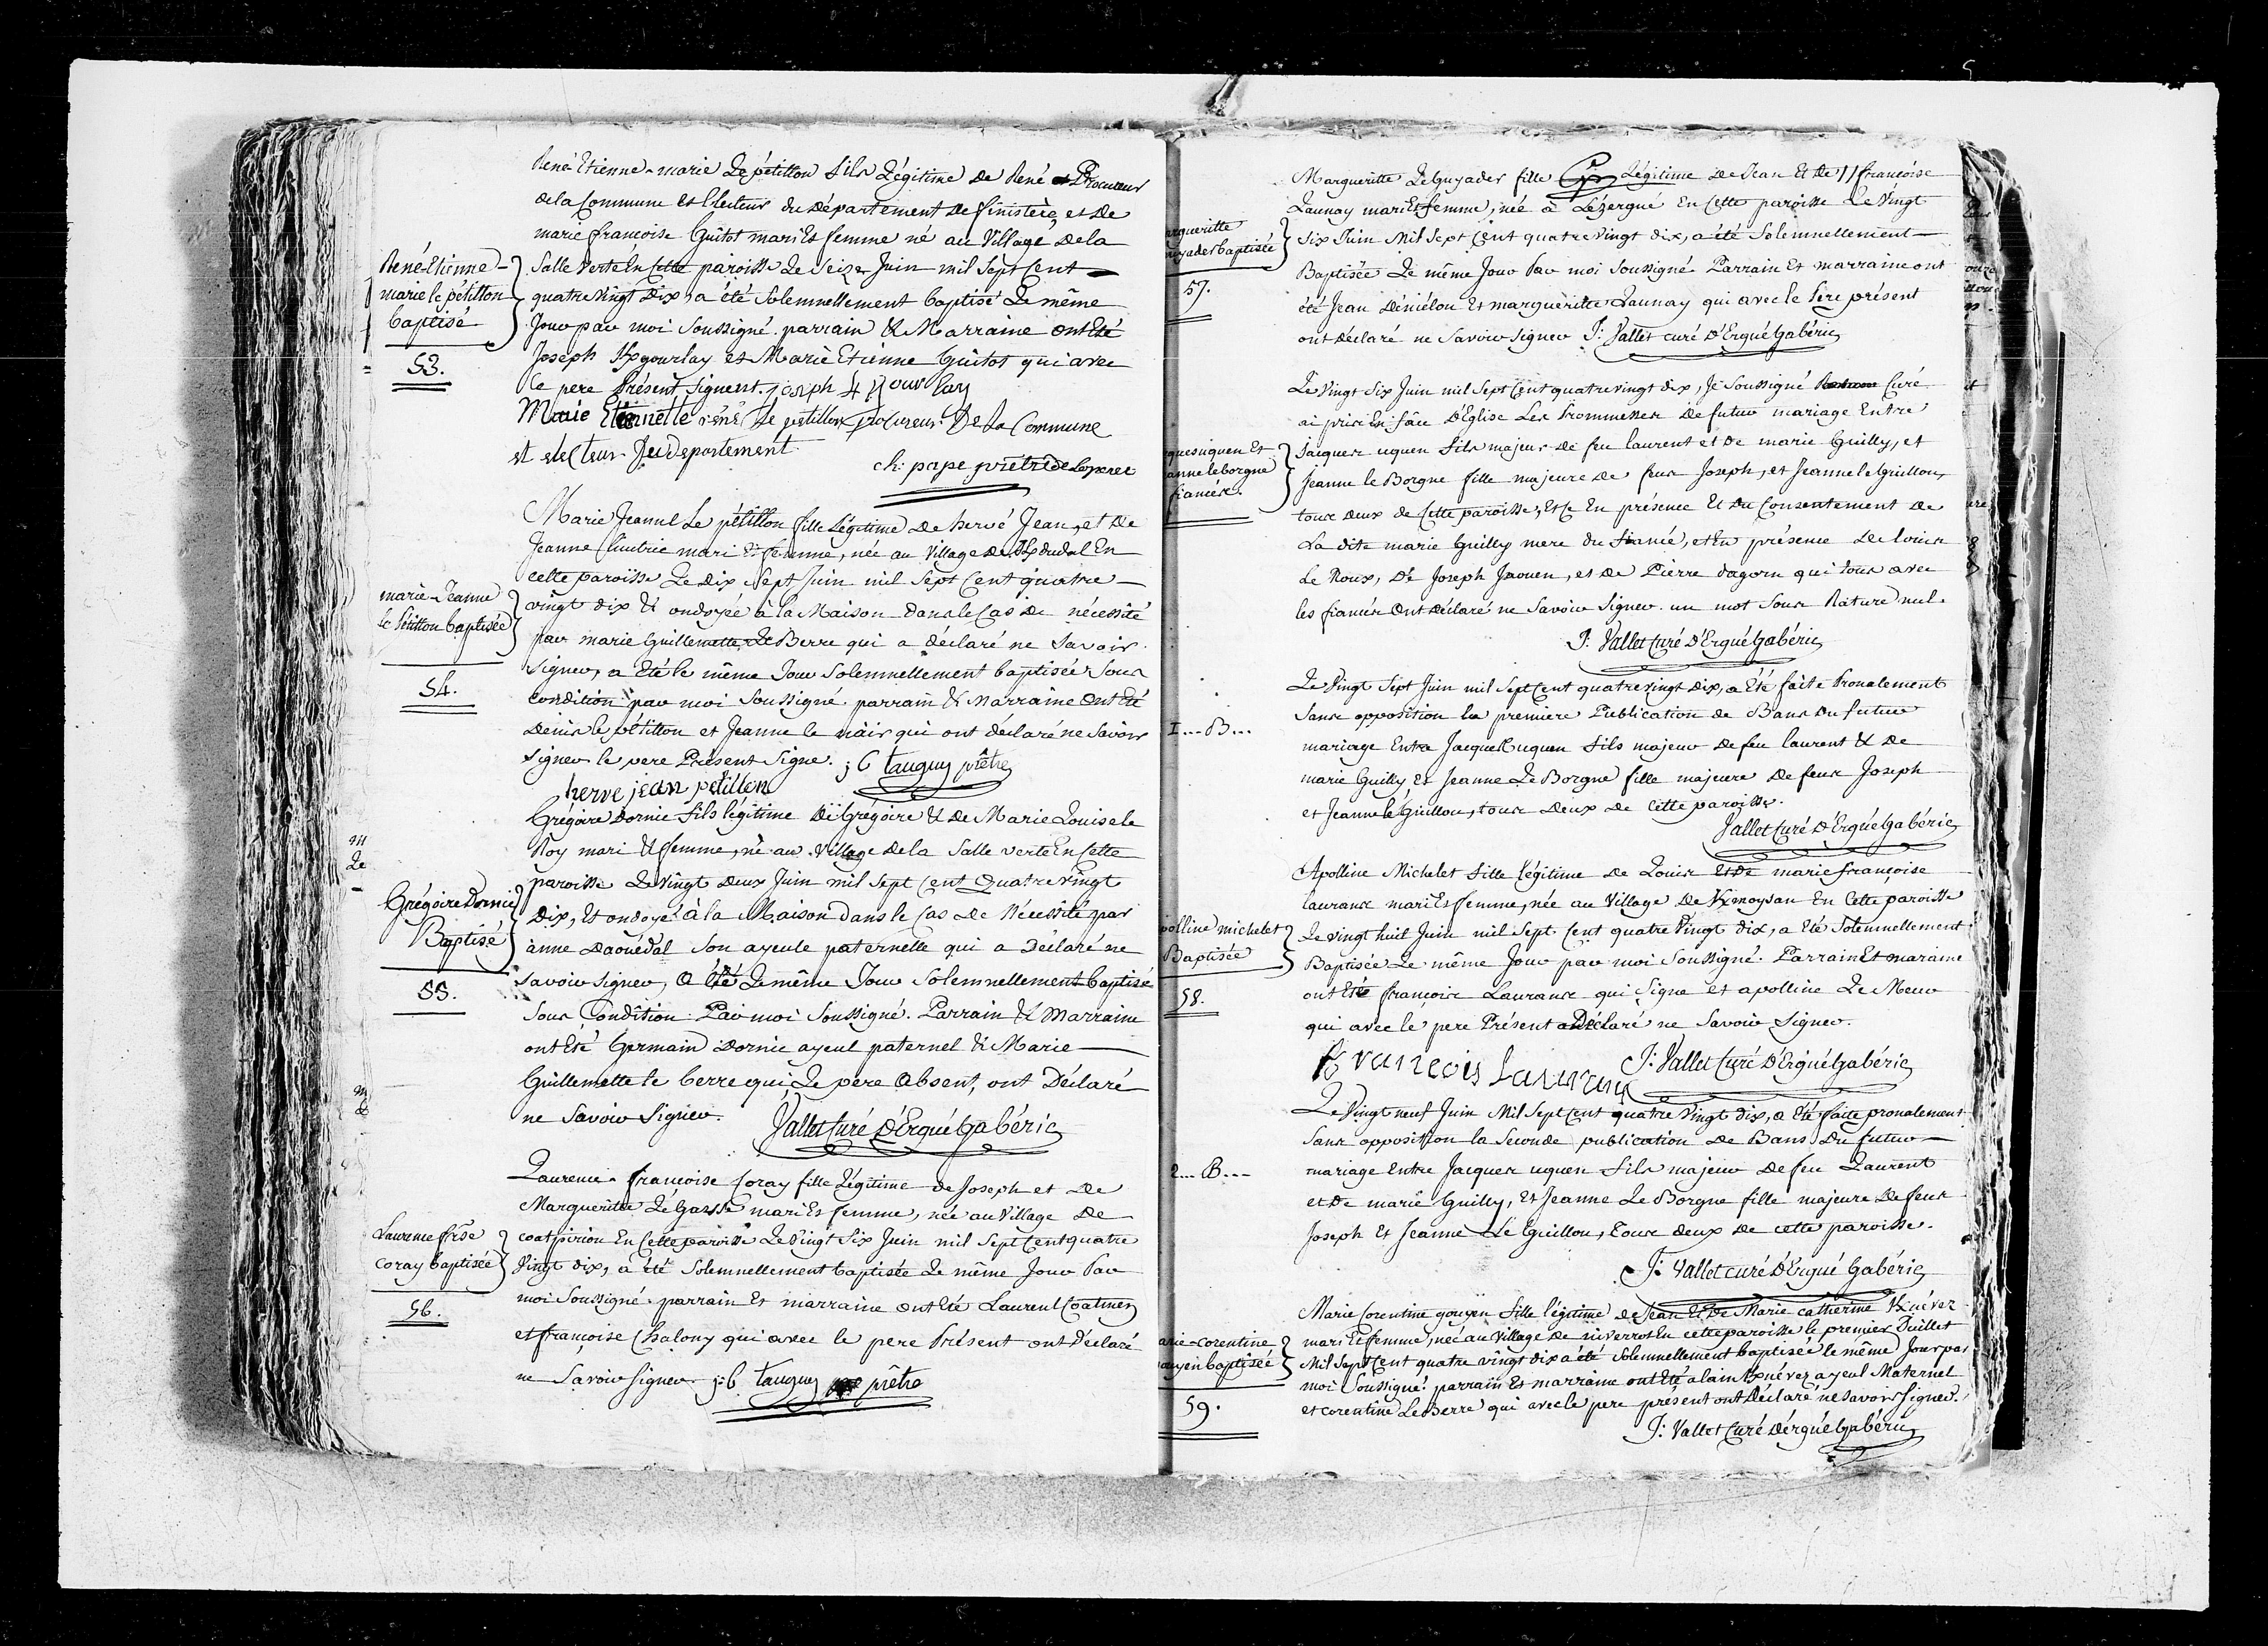 René Etienne-marie Le pétillon fils Légitime de René Procureur
de la Commune et Electeur du Département de finistère, et de
marie françoise Guitot mari Et femme né au Village de la
René-Etienne-
Salle verte En Cette paroisse Le Seize Juin mil Sept Cent
marie le pétillon
quatre Vingt Dix, a été Solemnellement baptisé Le même
baptisé
Jour par moi Soussigné. parrain & Marraine ont Eté
53.
Joseph Kgourlay et Marie Etienne Guitot qui avec
le pere Présent Signent. joseph
Marie Etiennette réné Le petillon procureur De La Commune
et electeur du departement
ch: pape prêtre de
Marie Jeanne Le pétillon fille Légitime de hervé Jean, et De
Jeanne mari Et femme, née au Village de Kdudal En
cette paroisse Le Dix Sept Juin mil Sept Cent quatre
marie-Jeanne
vingt dix & ondoyée à la Maison Dans le Cas De nécessité
le Pétillon baptisée
par marie Guillemette Le Berre qui a déclaré ne Savoir
signer, a Eté le même Jour Solemnellement baptisée Sous
54.
condition par moi Soussigné. parrain & Marraine ont Eté
Denis le pétillon et Jeanne le nair qui ont déclaré ne Savoir
signer le pere Présent Signe. tanguy prêtre
herve jean petillon
Grégoire Dornic fils légitime De Grégoire & De Marie Louise le
Roy mari & femme, né au Village De la Salle verte En Cette
paroisse Le Vingt Deux Juin mil Sept Cent Quatre Vingt
Grégoire Dornic
Dix, Et ondoyé à la Maison Dans le Cas De Nécessité par
Baptisé
anne Daouédal Son ayeule paternelle qui a Déclaré ne
Savoir Signer, a été Le même Jour Solemnellement baptisé
55.
Sous Condition Par moi Soussigné. Parrain & Marraine
ont Eté Germain Dornic ayeul paternel & Marie
Guillemette le berre qui, Le pere Absent, ont Déclaré
ne Savoir Signer. Vallet Curé D'Ergué Gabéric
Laurence-françoise Coray fille Légitime de Joseph et De
Margueritte Le Gars mari Et femme, née au Village De
Laurence frse
coat pirion En Cette paroisse Le Vingt Six Juin mil Sept Cent quatre
coray baptisée
Vingt dix, a été Solemnellement baptisée Le même Jour Par
56.
moi Soussigné. parrain Et marraine ont Eté Laurent Coatmen
et françoise Chalony qui avec le pere Présent ont Déclaré
ne Savoir Signer. tanguy prêtre
Margueritte Le Guyader fille Légitime De Jean Et De françoise
Launay mari Et femme, née à Lézergué En Cette paroisse Le Vingt
Six Juin Mil Sept Cent quatre Vingt Dix, a été Solemnellement
Baptisée Le même Jour Par moi Soussigné. Parrain Et marraine ont
57.
été Jean Déniélou Et margueritte Launay qui avec le Père présent
ont Déclaré ne Savoir Signer J: Vallet curé D'Ergué Gabéric
Le Vingt Six Juin mil Sept Cent quatre vingt dix, Je Soussigné Curé
ai pris En face D'Eglise Les Prommesses De futur mariage Entre
Jacques uguen fils majeur de feu laurent et de marie Guilly, et
anne le borgne
Jeanne le Borgne fille majeure de feux Joseph, et Jeanne le Guillou,
fiancés.
tous deux de Cette paroisse, Et Ce En présence Et Du Consentement de
La dite marie Guilly mere du fiancé, et En présence De Louis
Le Roux, De Joseph Jaouen, et De Pierre dagorn qui tous avec
les fiancés ont Déclaré ne Savoir Signer. un mot Sous Rature nul.
J: Vallet Curé D'Ergué Gabéric
Le Vingt Sept Juin mil Sept Cent quatre vingt Dix, a Eté faite Pronalement
Sans opposition la premiere Publication de Bans Du futur
1....B...
mariage Entre Jacques uguen fils majeur De feu laurent & De
marie Guilly, Et Jeanne Le Borgne fille majeure De feux Joseph
et Jeanne le Guillou, tous Deux De Cette paroisse.
Vallet Curé D'Ergué Gabéric
Apolline Michelet fille légitime De Louis Et De marie françoise
laurans mari Et femme, née au Village De Kmoysan En Cette paroisse
Le vingt huit Juin mil Sept Cent quatre Vingt dix, a Eté Solemnellement
Baptisée
Baptisée Le même Jour par moi Soussigné. Parrain Et maraine
58.
ont Eté françois Laurans qui Signe et apolline Le Meur
qui avec le pere Présent a Déclaré ne Savoir Signer.
francois Laurans J: Vallet Curé D'Ergué Gabéric
Le Vingt neuf Juin Mil Sept Cent quatre Vingt dix, a Eté faite pronalement
Sans opposition la Seconde publication De Bans Du futur
2....B...
mariage Entre Jacques uguen fils majeur De feu Laurent
et De marie Guilly, Et Jeanne Le Borgne fille majeure De feux
Joseph Et Jeanne Le Guillou, tous deux De cette paroisse.
J: Vallet curé D'Ergué Gabéric
Marie Corentine gouyen fille légitime de Jean Et De Marie catherine Knévez
mari Et femme, née au Village De niverrot En cette paroisse le premier Juillet
Mil Sept Cent quatre vingt dix a été Solemnellement baptisée le même Jour par
moi Soussigné. parrain Et marraine ont Eté alain Knévez ayeul Maternel
59.
et corentine Le Berre qui avec le pere présent ont Déclaré ne Savoir Signer.
J: Vallet Curé D'ergué Gabéric